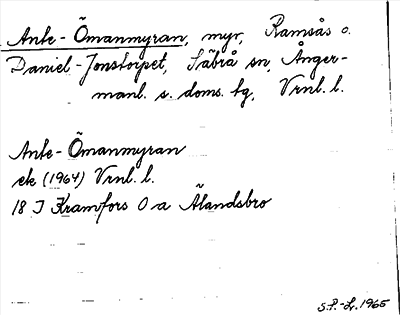 Ante-Ömanmyran, myr, Ramsås o.
Daniel-Jonstorpet, Säbrå sn, Ånger-
manl. s. doms. tg, Vrnl. l.
Ante-Ömanmyran
ek (1964) Vrnl. l.
18 J Kramfors O a Älandsbro
S.P.-L. 1965